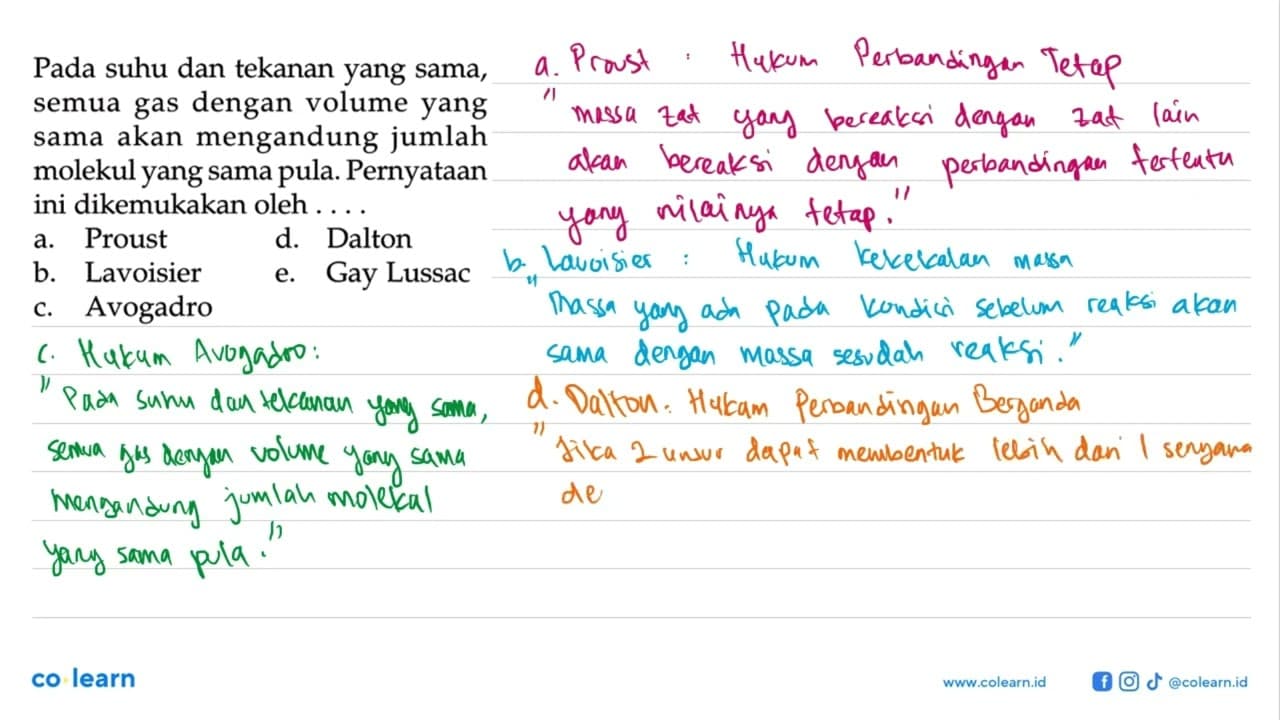 Pada suhu dan tekanan yang sama,
semua gas dengan volume yang
sama akan mengandung jumlah
molekul yang sama pula. Pernyataan
ini dikemukakan oleh . . . .
a. Proust d. Dalton
b. Lavoisier e. Gay Lussac
c. Avogadro
c. Hukum Avogadro:
"Pada suhu dan tekanan yang sama,
semua gas dengan volume yang sama
mengandung jumlah molekul
yang sama pula."
a. Proust : Hukum Perbandingan Tetap
"massa zat yang bereaksi dengan zat lain
akan bereaksi dengan perbandingan tertentu
yang nilainya tetap."
b. Lavoisier : Hukum kekekalan massa
"Massa yang ada pada kondisi sebelum reaksi akan
sama dengan massa sesudah reaksi."
d. Dalton: Hukum Perbandingan Berganda
"Jika 2 unsur dapat membentuk lebih dari 1 senyawa
de
co learn
www.colearn.id @colearn.id